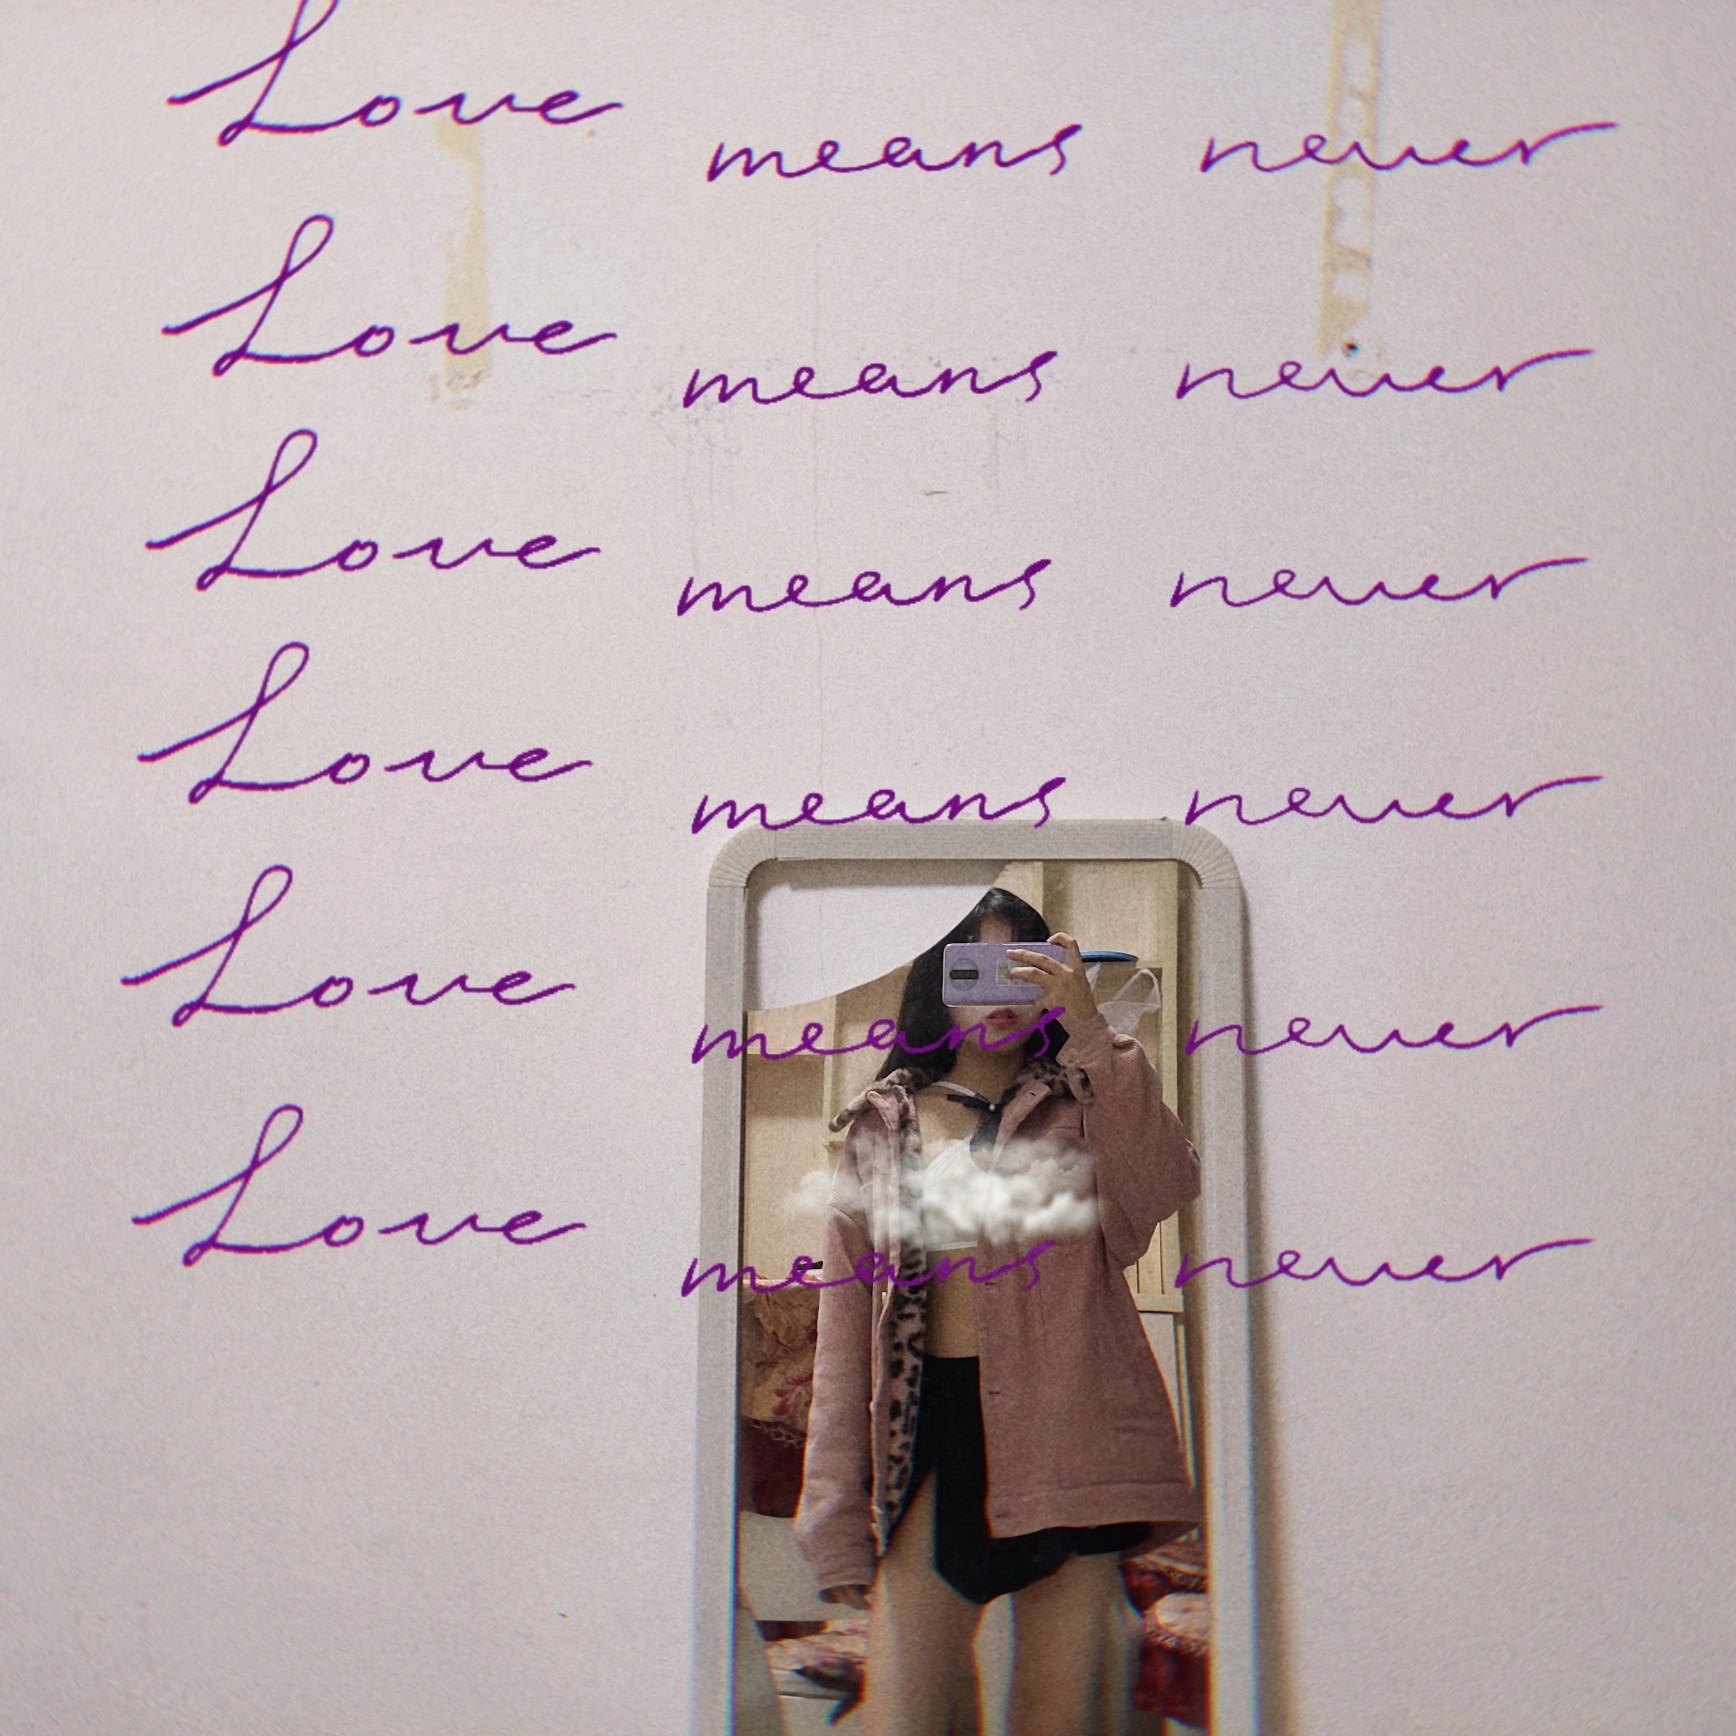 Love means never
Love means never
Love means never
Love means never
Love means never
Love means never